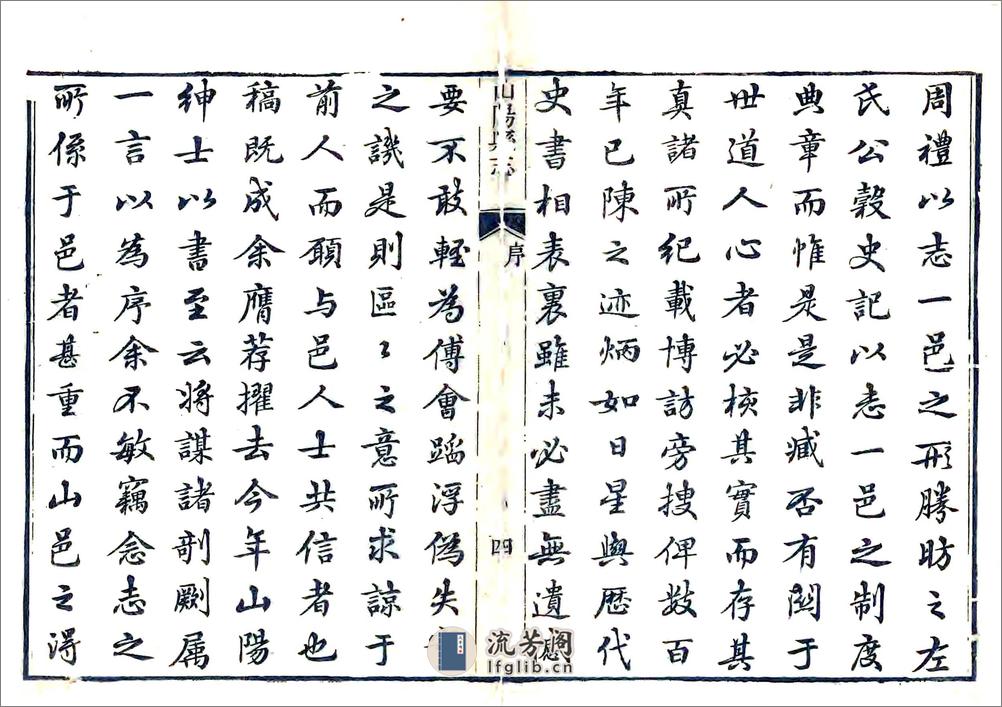 周禮以志一邑之形勝昉之左
氏公穀史記以志一邑之制度
典章而惟是是非臧否有関于
世道人心者必核其實而存其
真諸所紀載博訪旁搜俾数百
年已陳之迹炳如日星與歷代
史書相表裏雖未必盡無遺
山陽縣志
序
四
要不敢輕為傅會蹈浮偽失
之譏是則區〻之意所求諒于
前人而願与邑人士共信者也
稿既成余膺荐擢去今年山陽
紳士以書至云將謀諸剞劂属
一言以為序余不敏竊念志之
所係于邑者甚重而山邑之得
流芳阁
lfglib.cn